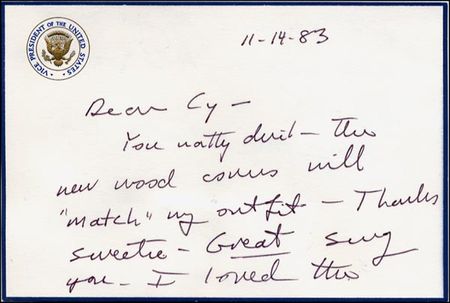 VICE PRESIDENT OF THE UNITED STATES
11-14-83
Dear Cy —
You natty devil — the
new wood covers will
"match" my outfit — Thanks
sweetie — Great seeing
you — I loved the